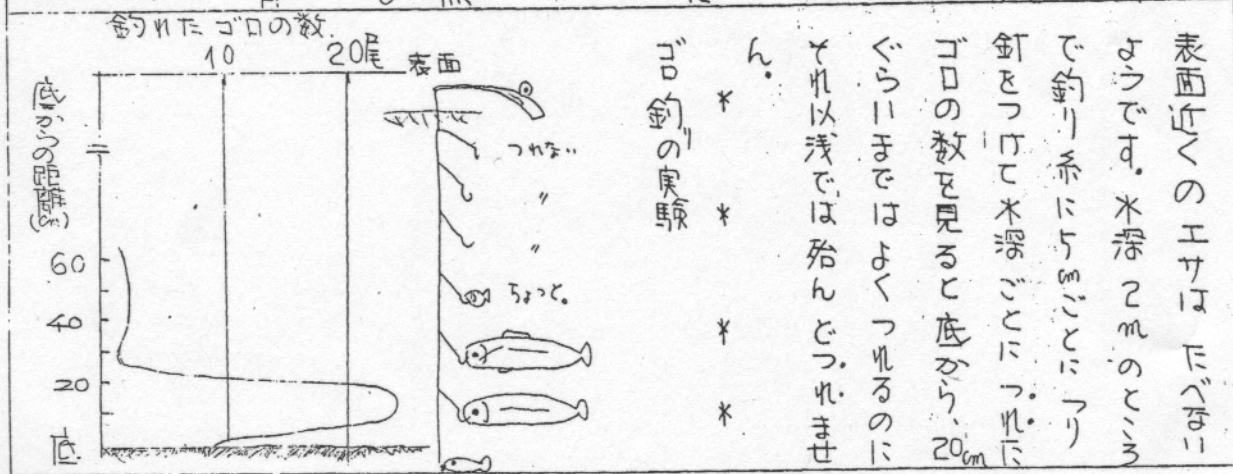 表面近くのエサはたべない
ようです。水深2mのところ
で釣り糸に5cmごとにつり
釘をつけて水深ごとにつれた
ゴロの数を見ると底から、20cm
ぐらいまではよくつれるのに
それ以浅では殆んどつれませ
ん。
* * * *
ゴロ釣りの実験
釣れたゴロの数
10 20尾
表面
底からの距離(cm)
60
40
20
底
つれない
〃
〃
ちょっと。